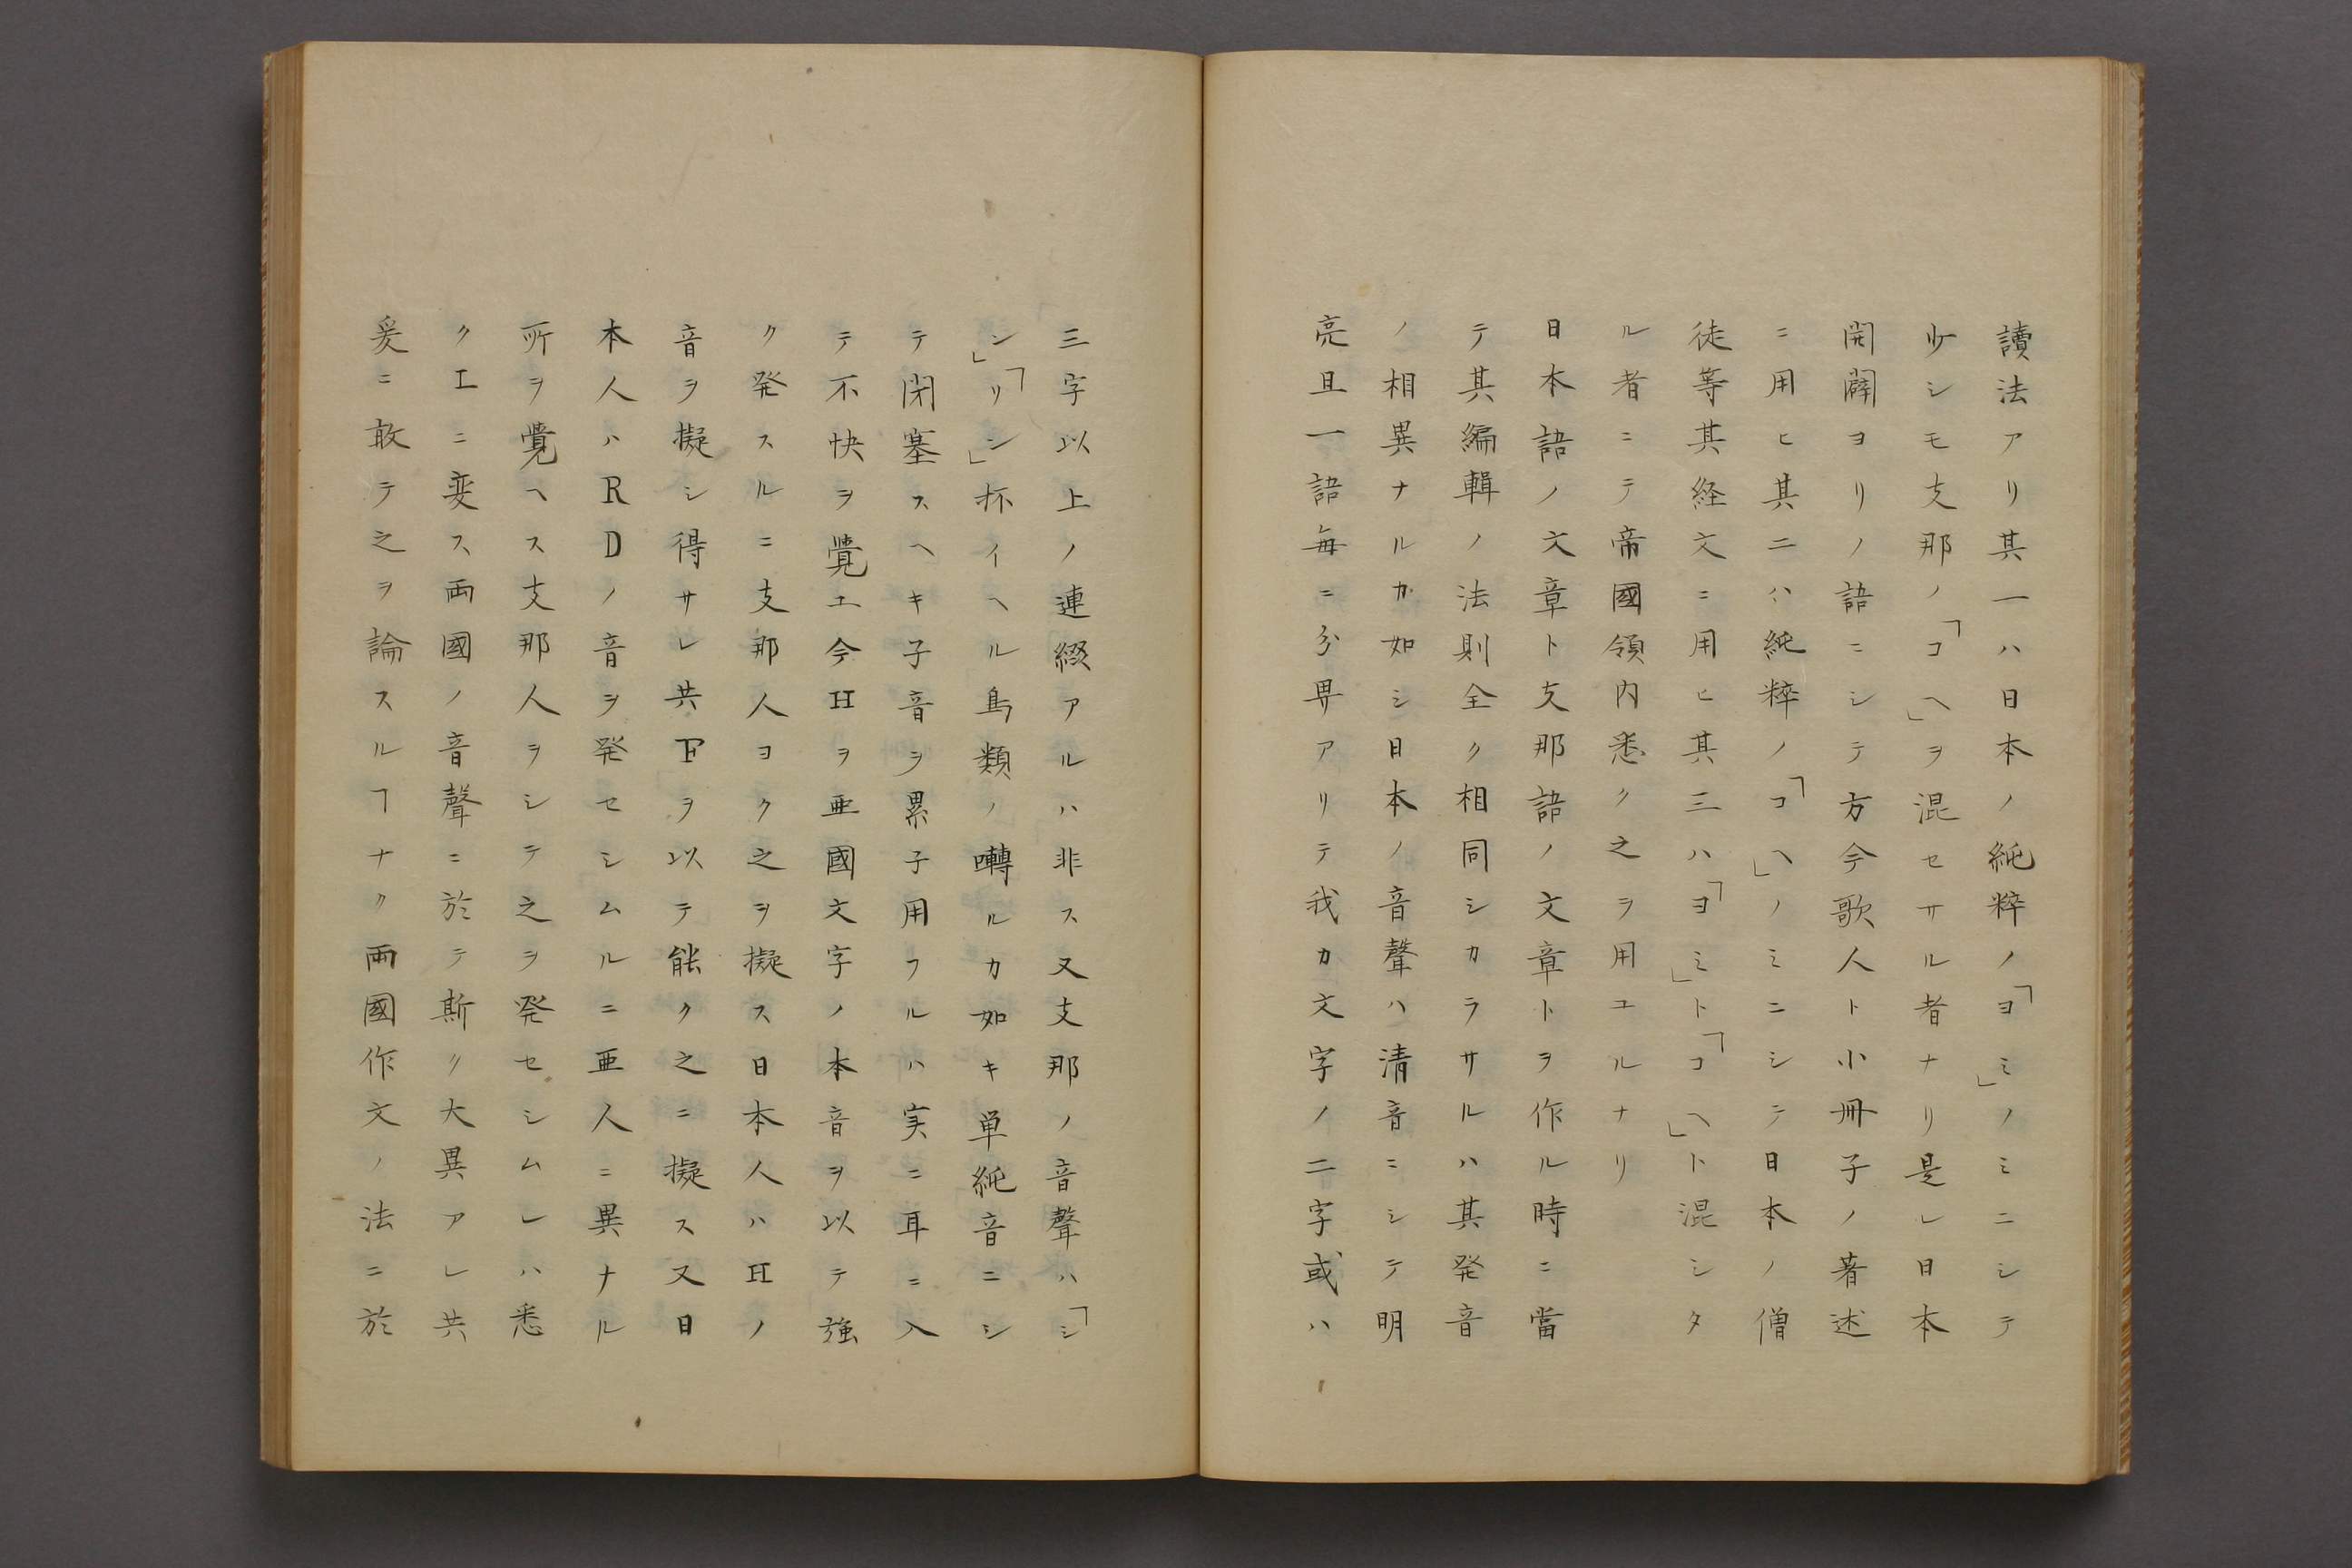 讀法アリ其一ハ日本ノ純粹ノ「ヨミ」ノミニシテ
少シモ支那ノ「コヘ」ヲ混セサル者ナリ是レ日本
開闢ヨリノ語ニシテ方今歌人ト小冊子ノ著述
ニ用ヒ其二ハ純粹ノ「コヘ」ノミニシテ日本ノ僧
徒等其経文ニ用ヒ其三ハ「ヨミ」ト「コヘ」ト混シタ
ル者ニテ帝國領内悉ク之ヲ用ユルナリ
日本語ノ文章ト支那語ノ文章トヲ作ル時ニ當
テ其編輯ノ法則全ク相同シカラサルハ其発音
ノ相異ナルカ如シ日本ノ音聲ハ清音ニシテ明
亮且一語毎ニ分界アリテ我カ文字ノ二字或ハ
三字以上ノ連綴アルハ非ス又支那ノ音聲ハ「シ
ン」「リン」抔イヘル鳥類ノ囀ルカ如キ単純音ニシ
テ閉塞スヘキ子音ヲ累子用フルハ実ニ耳ニ入
テ不快ヲ覺エ今Hヲ亜國文字ノ本音ヲ以テ強
ク発スルニ支那人ヨク之ヲ擬ス日本人ハHノ
音ヲ擬シ得サレ共Fヲ以テ能ク之ニ擬ス又日
本人ハRDノ音ヲ発セシムルニ亜人ニ異ナル
所ヲ覺ヘス支那人ヲシテ之ヲ発セシムレハ悉
クエニ変ス両國ノ音聲ニ於テ斯ク大異アレ共
爰ニ敢テ之ヲ論スルヿナク両國作文ノ法ニ於